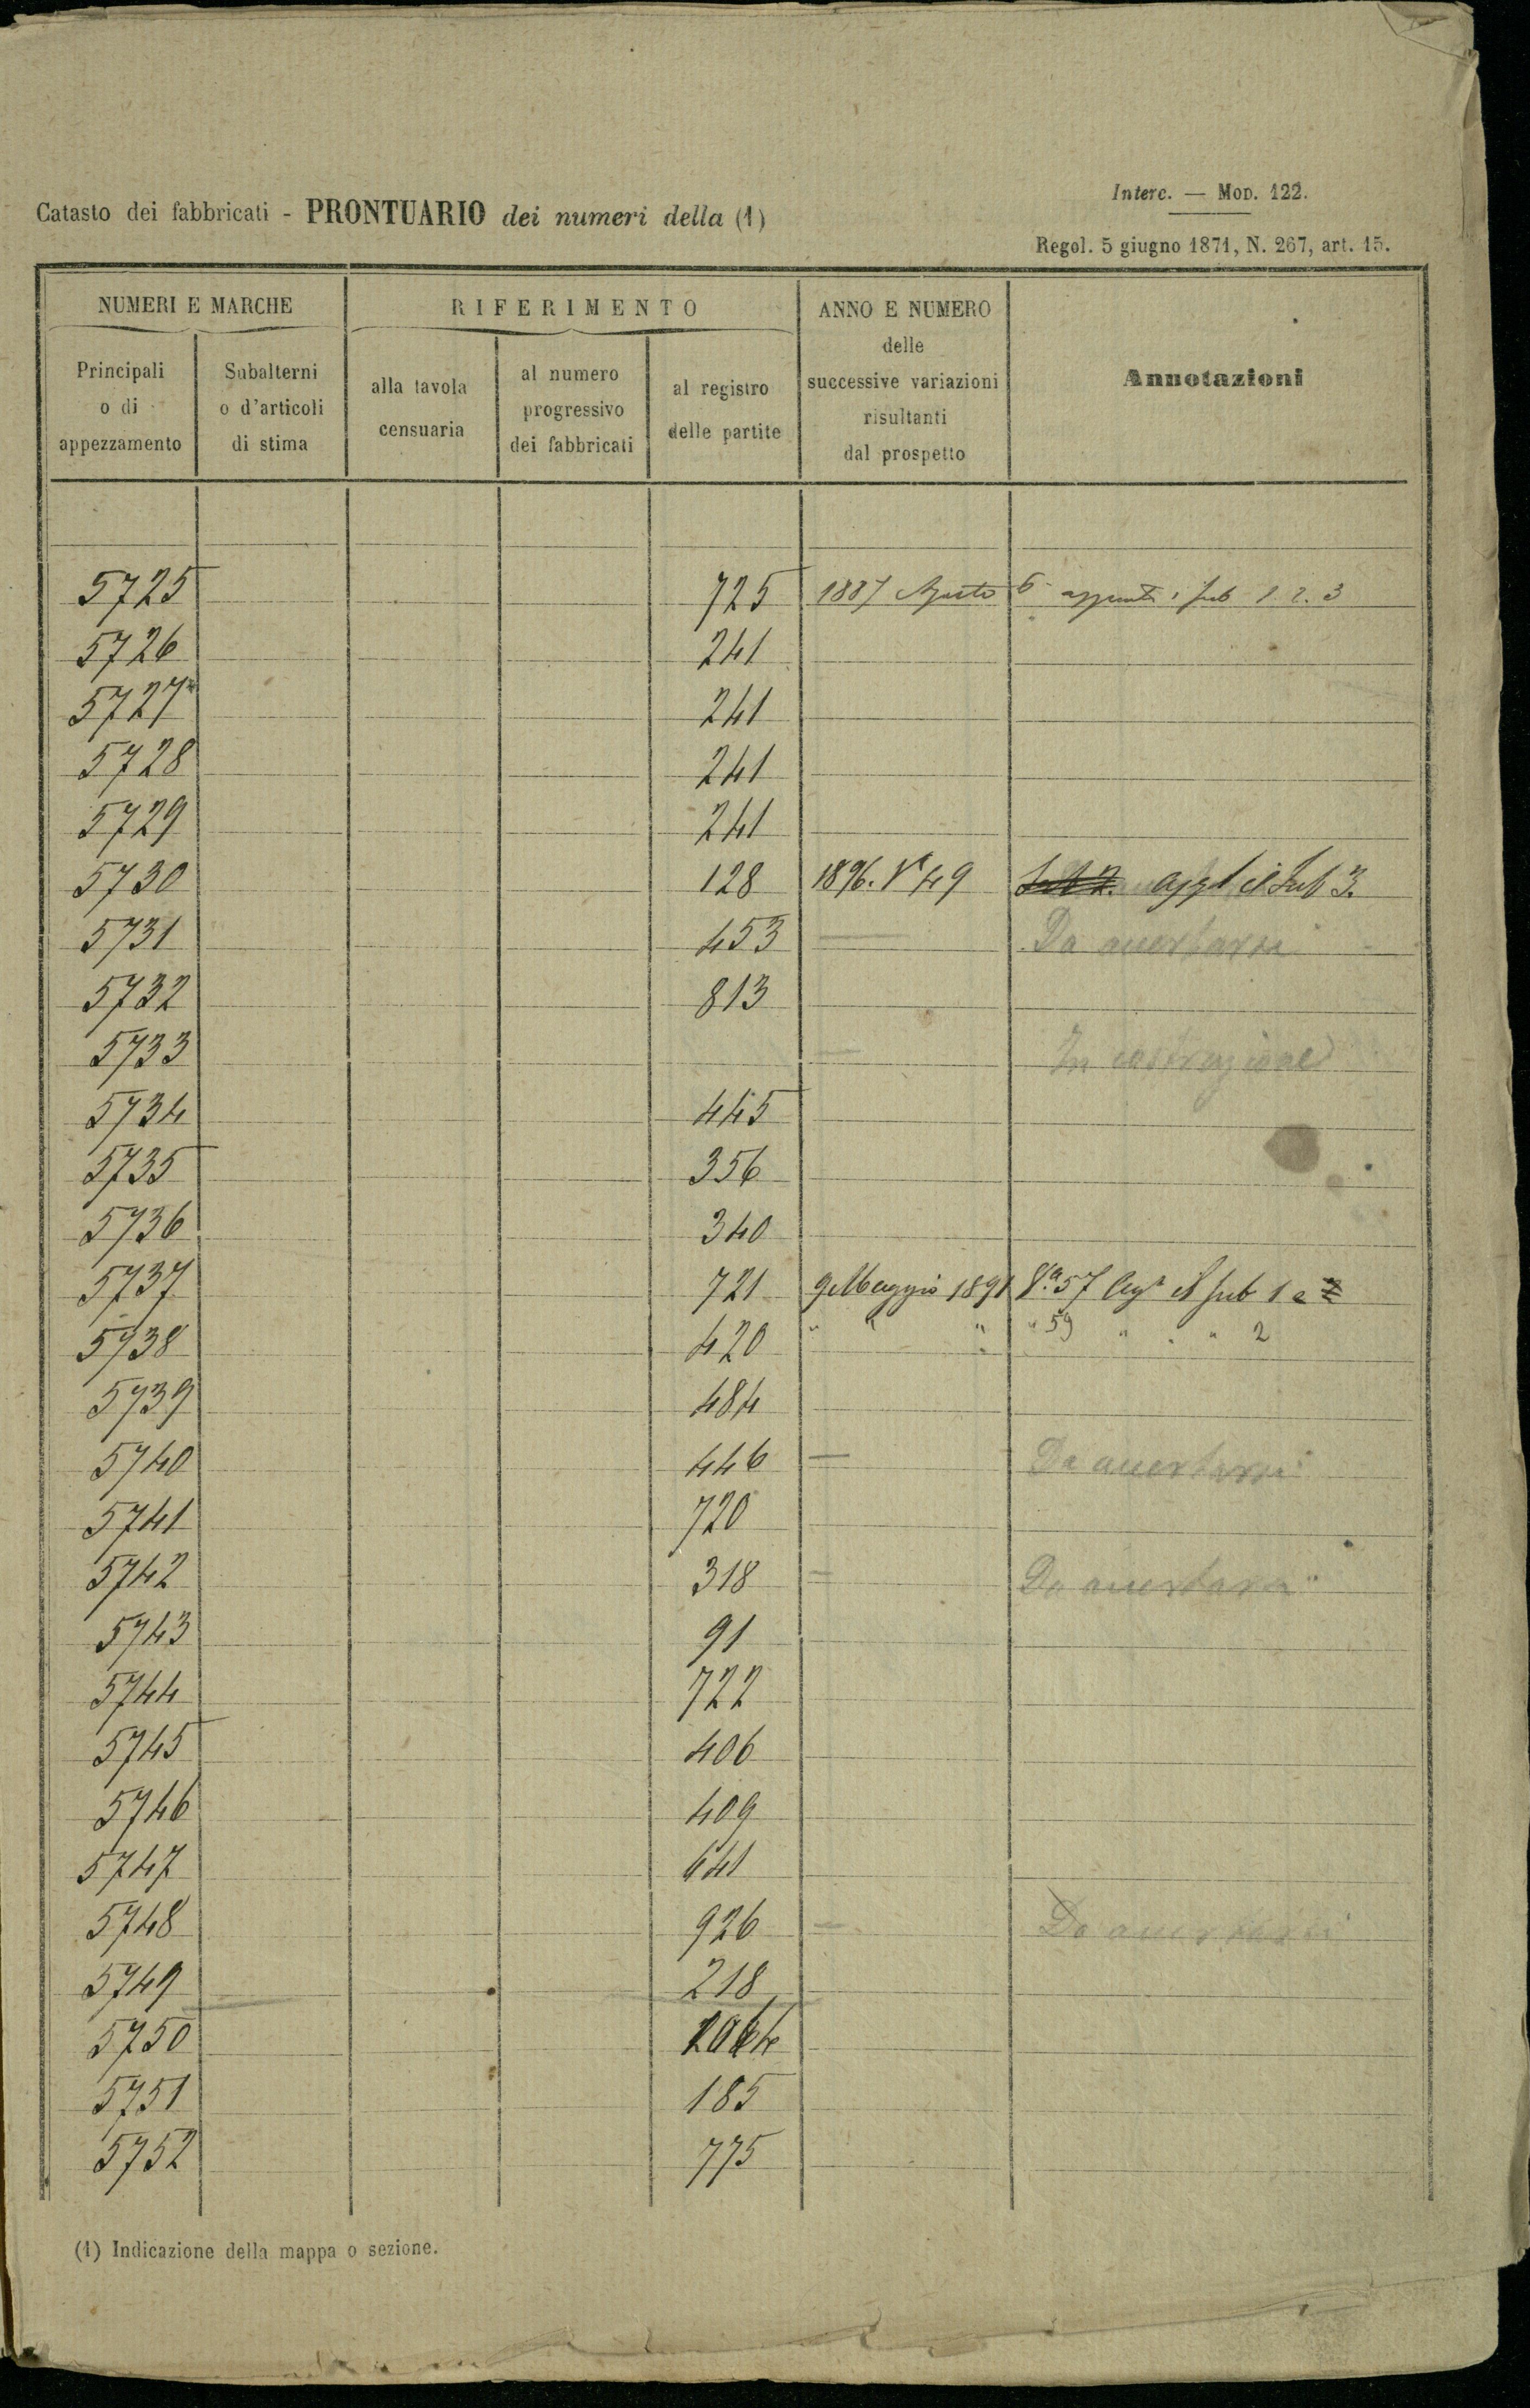 Interc. — MOD. 122.
Catasto dei fabbricati - PRONTUARIO dei numeri della (1)
Regol. 5 giugno 1871, N. 267, art. 15.
NUMERI E MARCHE RIFERIMENTO ANNO E NUMERO delle successive variazioni risultanti dal prospetto Annotazioni
Principali o di appezzamento Subalterni o d'articoli di stima alla tavola censuaria al numero progressivo dei fabbricati al registro delle partite
5725 725 1887 Agosto 6 sub 1. 2. 3
5726 241
5727 241
5728 241
5729 241
5730 128 1896. N 49 il sub 3.
5731 453 — Da accertarsi
5732 813
5733 — In costruzione
5734 445
5735 356
5736 340
5737 721 9 Maggio 1891 57 sub 1 e 2
5738 420 " " " " 59 " " " 2
5739 484
5740 446 — Da accertarsi
5741 720
5742 318 — Da accertarsi
5743 91
5744 722
5745 406
5746 409
5747 641
5748 926 — Da accertarsi
5749 218
5750
5751 185
5752 775
(1) Indicazione della mappa o sezione.